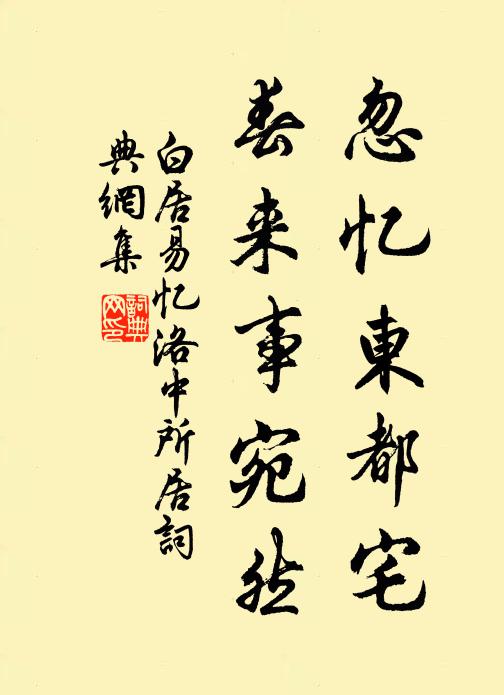 忽忆東都宅
春来事宛然
白居易忆洛中所居詞
典網集
詞典网印